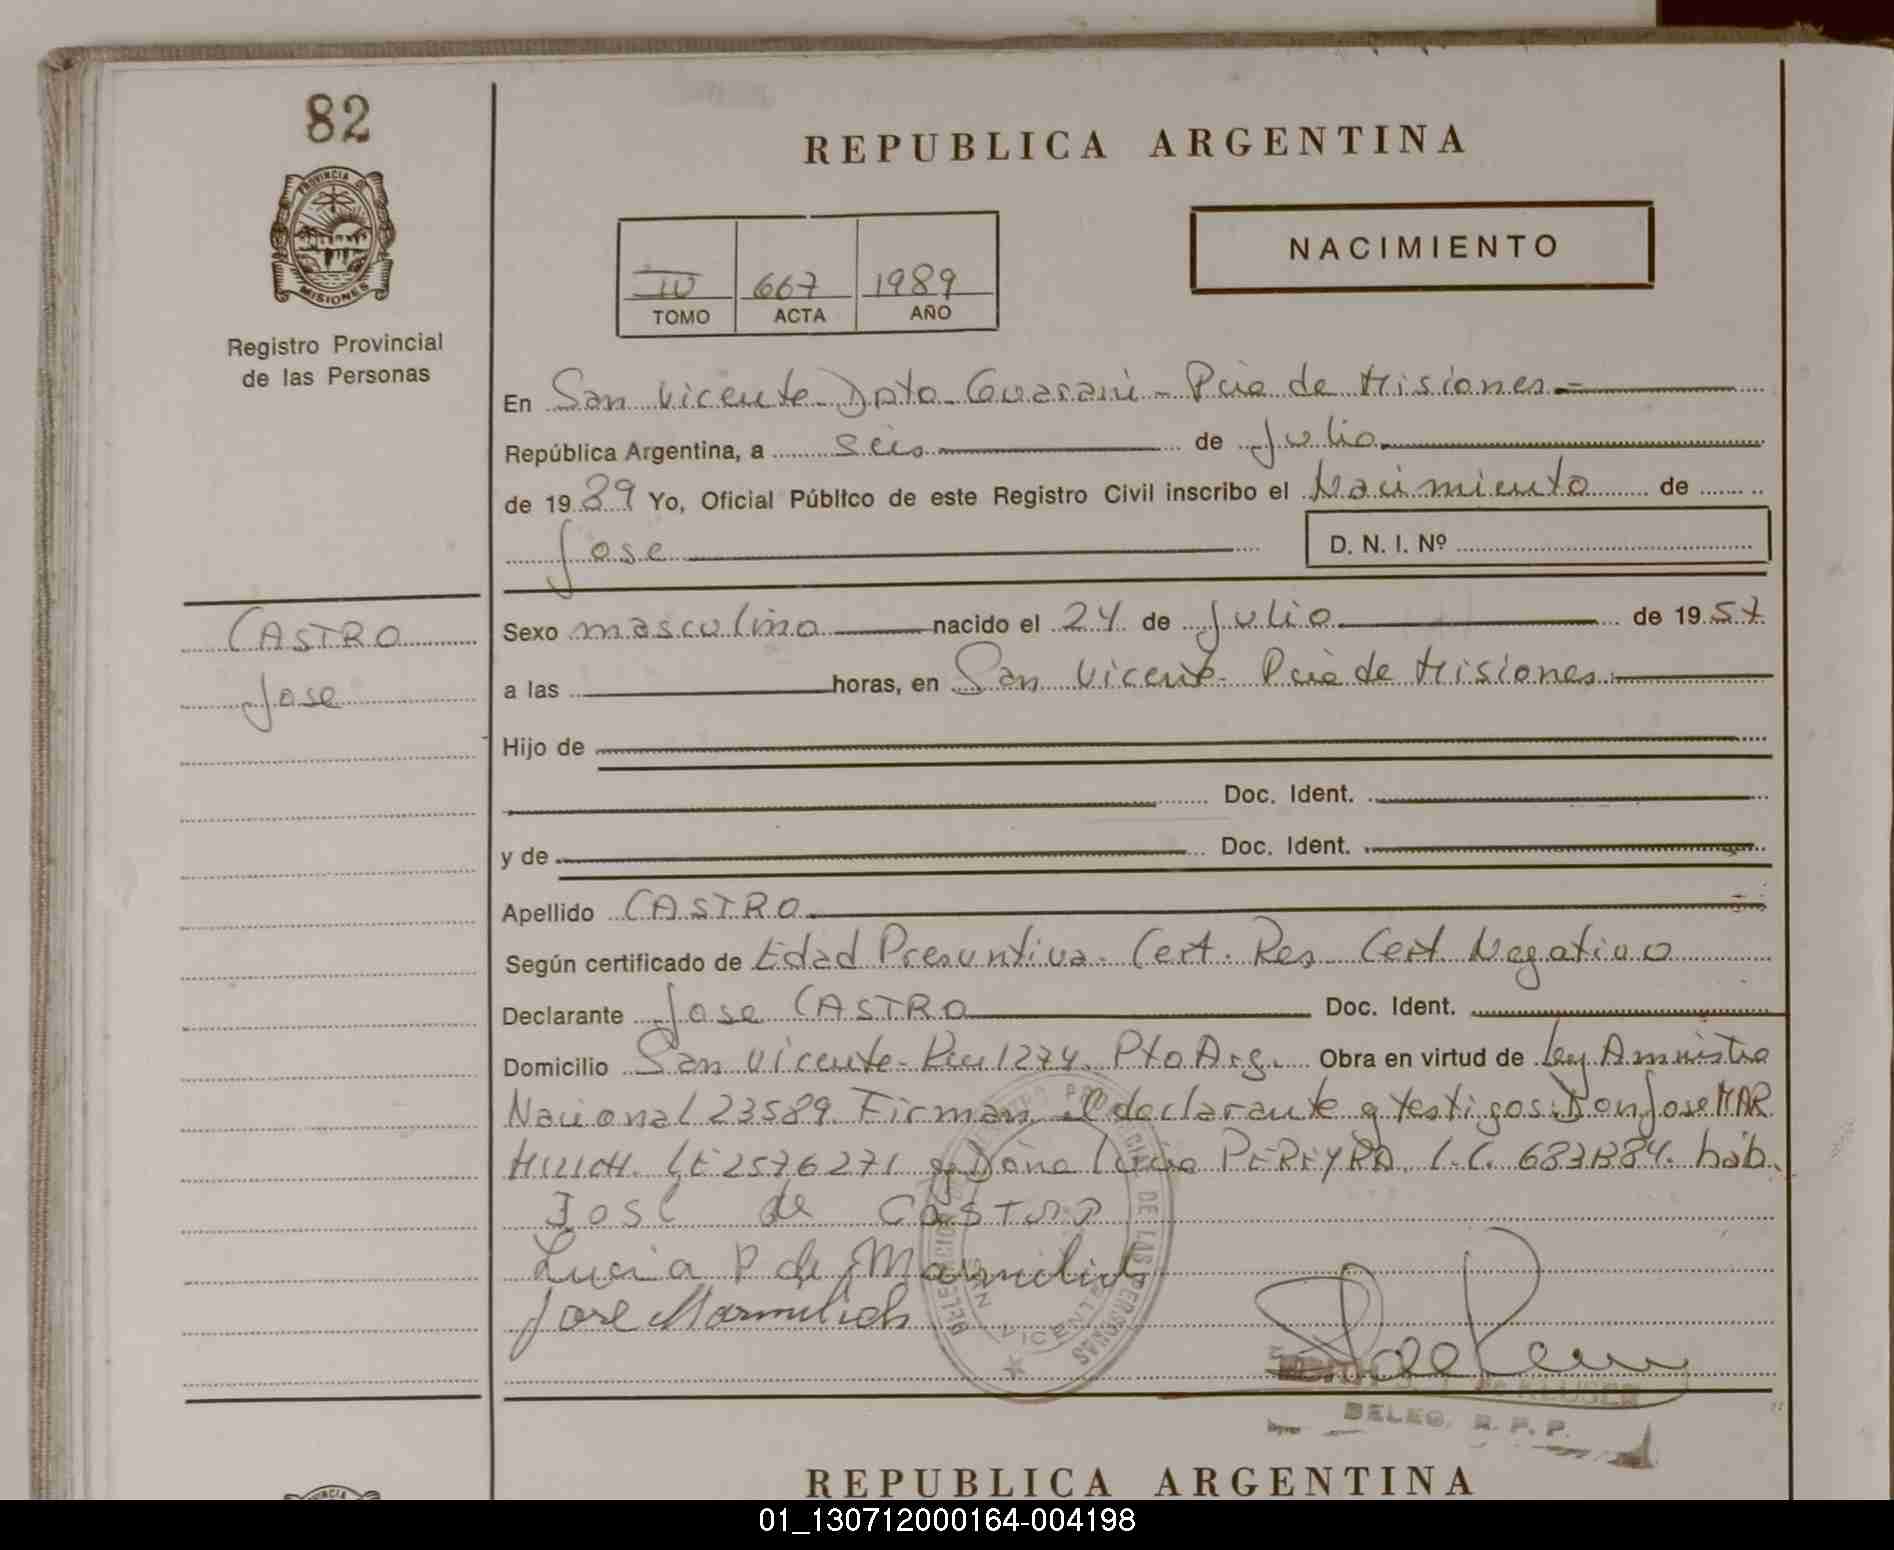 82
PROVINCIA DE
MISIONES
Registro Provincial
de las Personas
REPUBLICA ARGENTINA
NACIMIENTO
IV 667 1989
TOMO ACTA AÑO
En San Vicente Dpto Guarani - Pcia de Misiones.-
República Argentina, a seis de Julio
de 19 89 Yo, Oficial Público de este Registro Civil inscribo el Nacimiento de
Jose
D. N. I. Nº
CASTRO
Jose
Sexo masculino nacido el 24 de Julio de 19 57
a las horas, en San Vicente - Pcia de Misiones
Hijo de
Doc. Ident.
y de Doc. Ident.
Apellido CASTRO
Según certificado de Edad Presuntiva. Cert. Res. Cert. Negativo
Declarante Jose CASTRO Doc. Ident.
Domicilio San Vicente - 1274. Pto Arg. Obra en virtud de Ley Amnistia
Nacional 23589. Firman el declarante y testigos: Don Jose MAR
MILICH. LE 2576271 y Doña Lucia PEREYRA. L.C. hab.
Jose de CASTRO
Lucia P de Marmilich
Jose Marmilich
DE LAS PERSONAS
SAN VICENTE
de KLUSER
DELEG. R. P. P.
REPUBLICA ARGENTINA
01_130712000164-004198